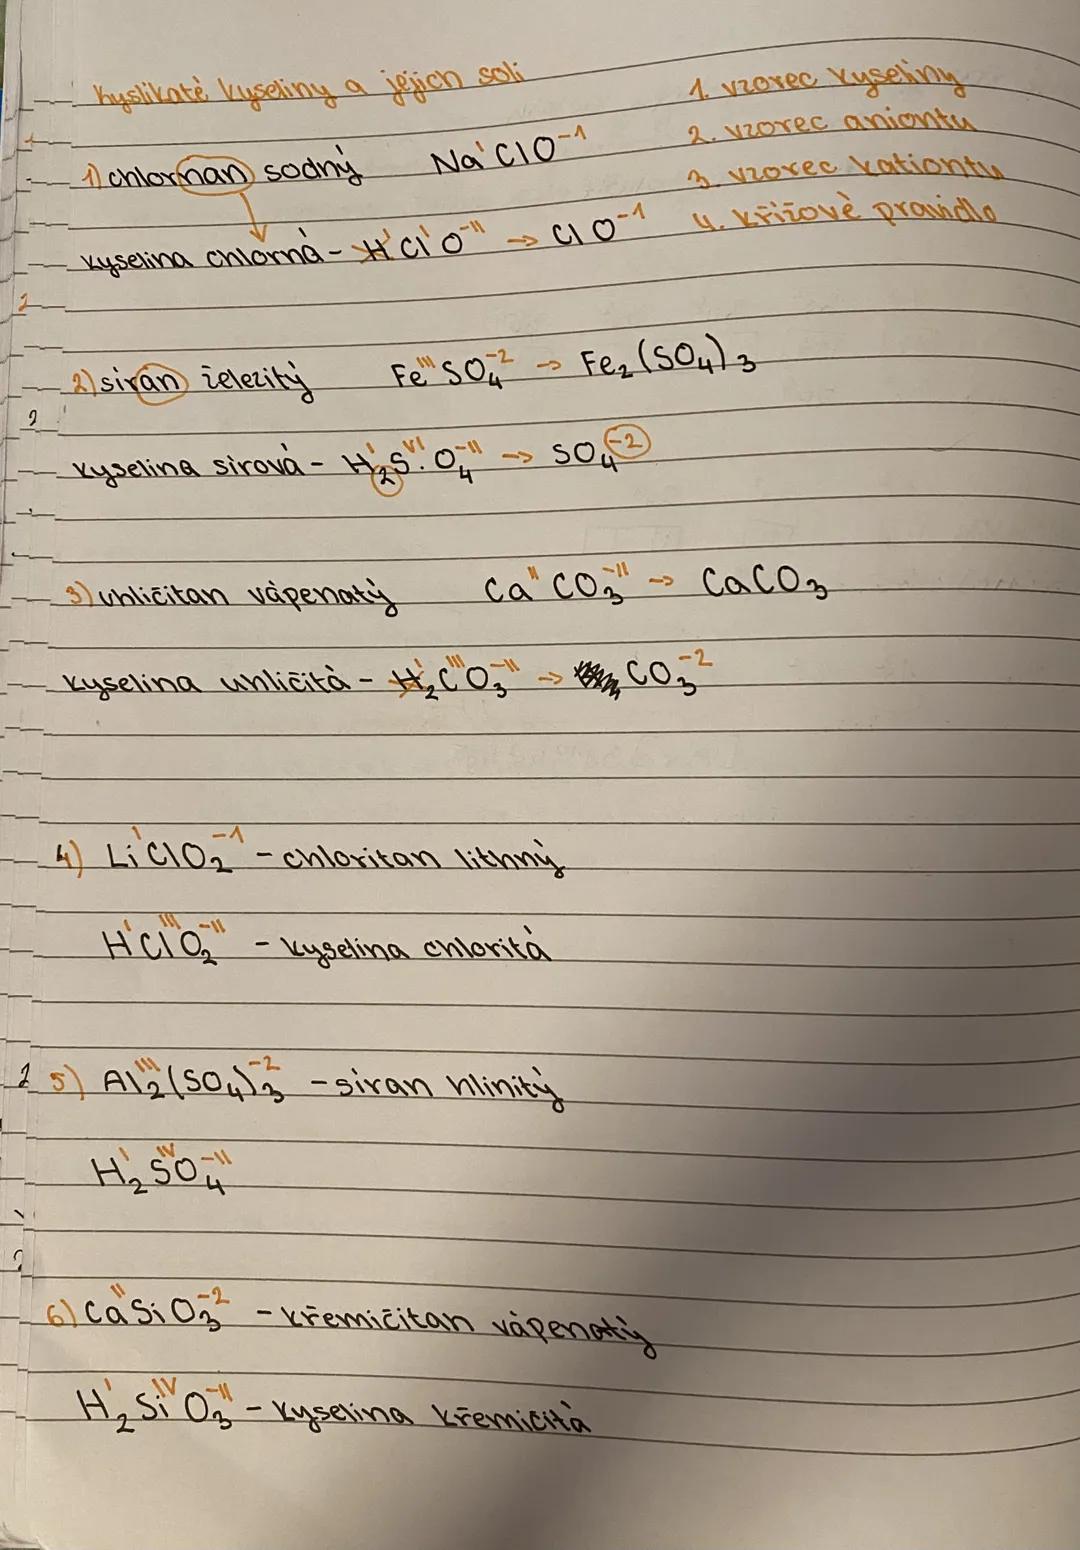 Kyslikaté kyseliny a jejich soli
1. vzorec kyseliny
2. vzorec aniontu
3. vzorec kationtu
4. křížové pravidlo
1) chlornan sodný Na^I ClO^-1
kyselina chlorná - H^I Cl^I O^-II → ClO^-1
2) síran železitý Fe^III SO₄^-2 → Fe₂(SO₄)₃
kyselina sírová - H₂^I S^VI O₄^-II → SO₄^-2
3) uhličitan vápenatý Ca^II CO₃^-II → CaCO₃
kyselina uhličitá - H₂^I C^III O₃^-II → CO₃^-2
4) Li^I ClO₂^-1 - chloritan lithný
H^I Cl^III O₂^-II - kyselina chloritá
5) Al₂^III (SO₄)₃^-2 - síran hlinitý
H₂^I S^IV O₄^-II
6) Ca^II SiO₃^-2 - křemičitan vápenatý
H₂^I Si^IV O₃^-II - kyselina křemičitá